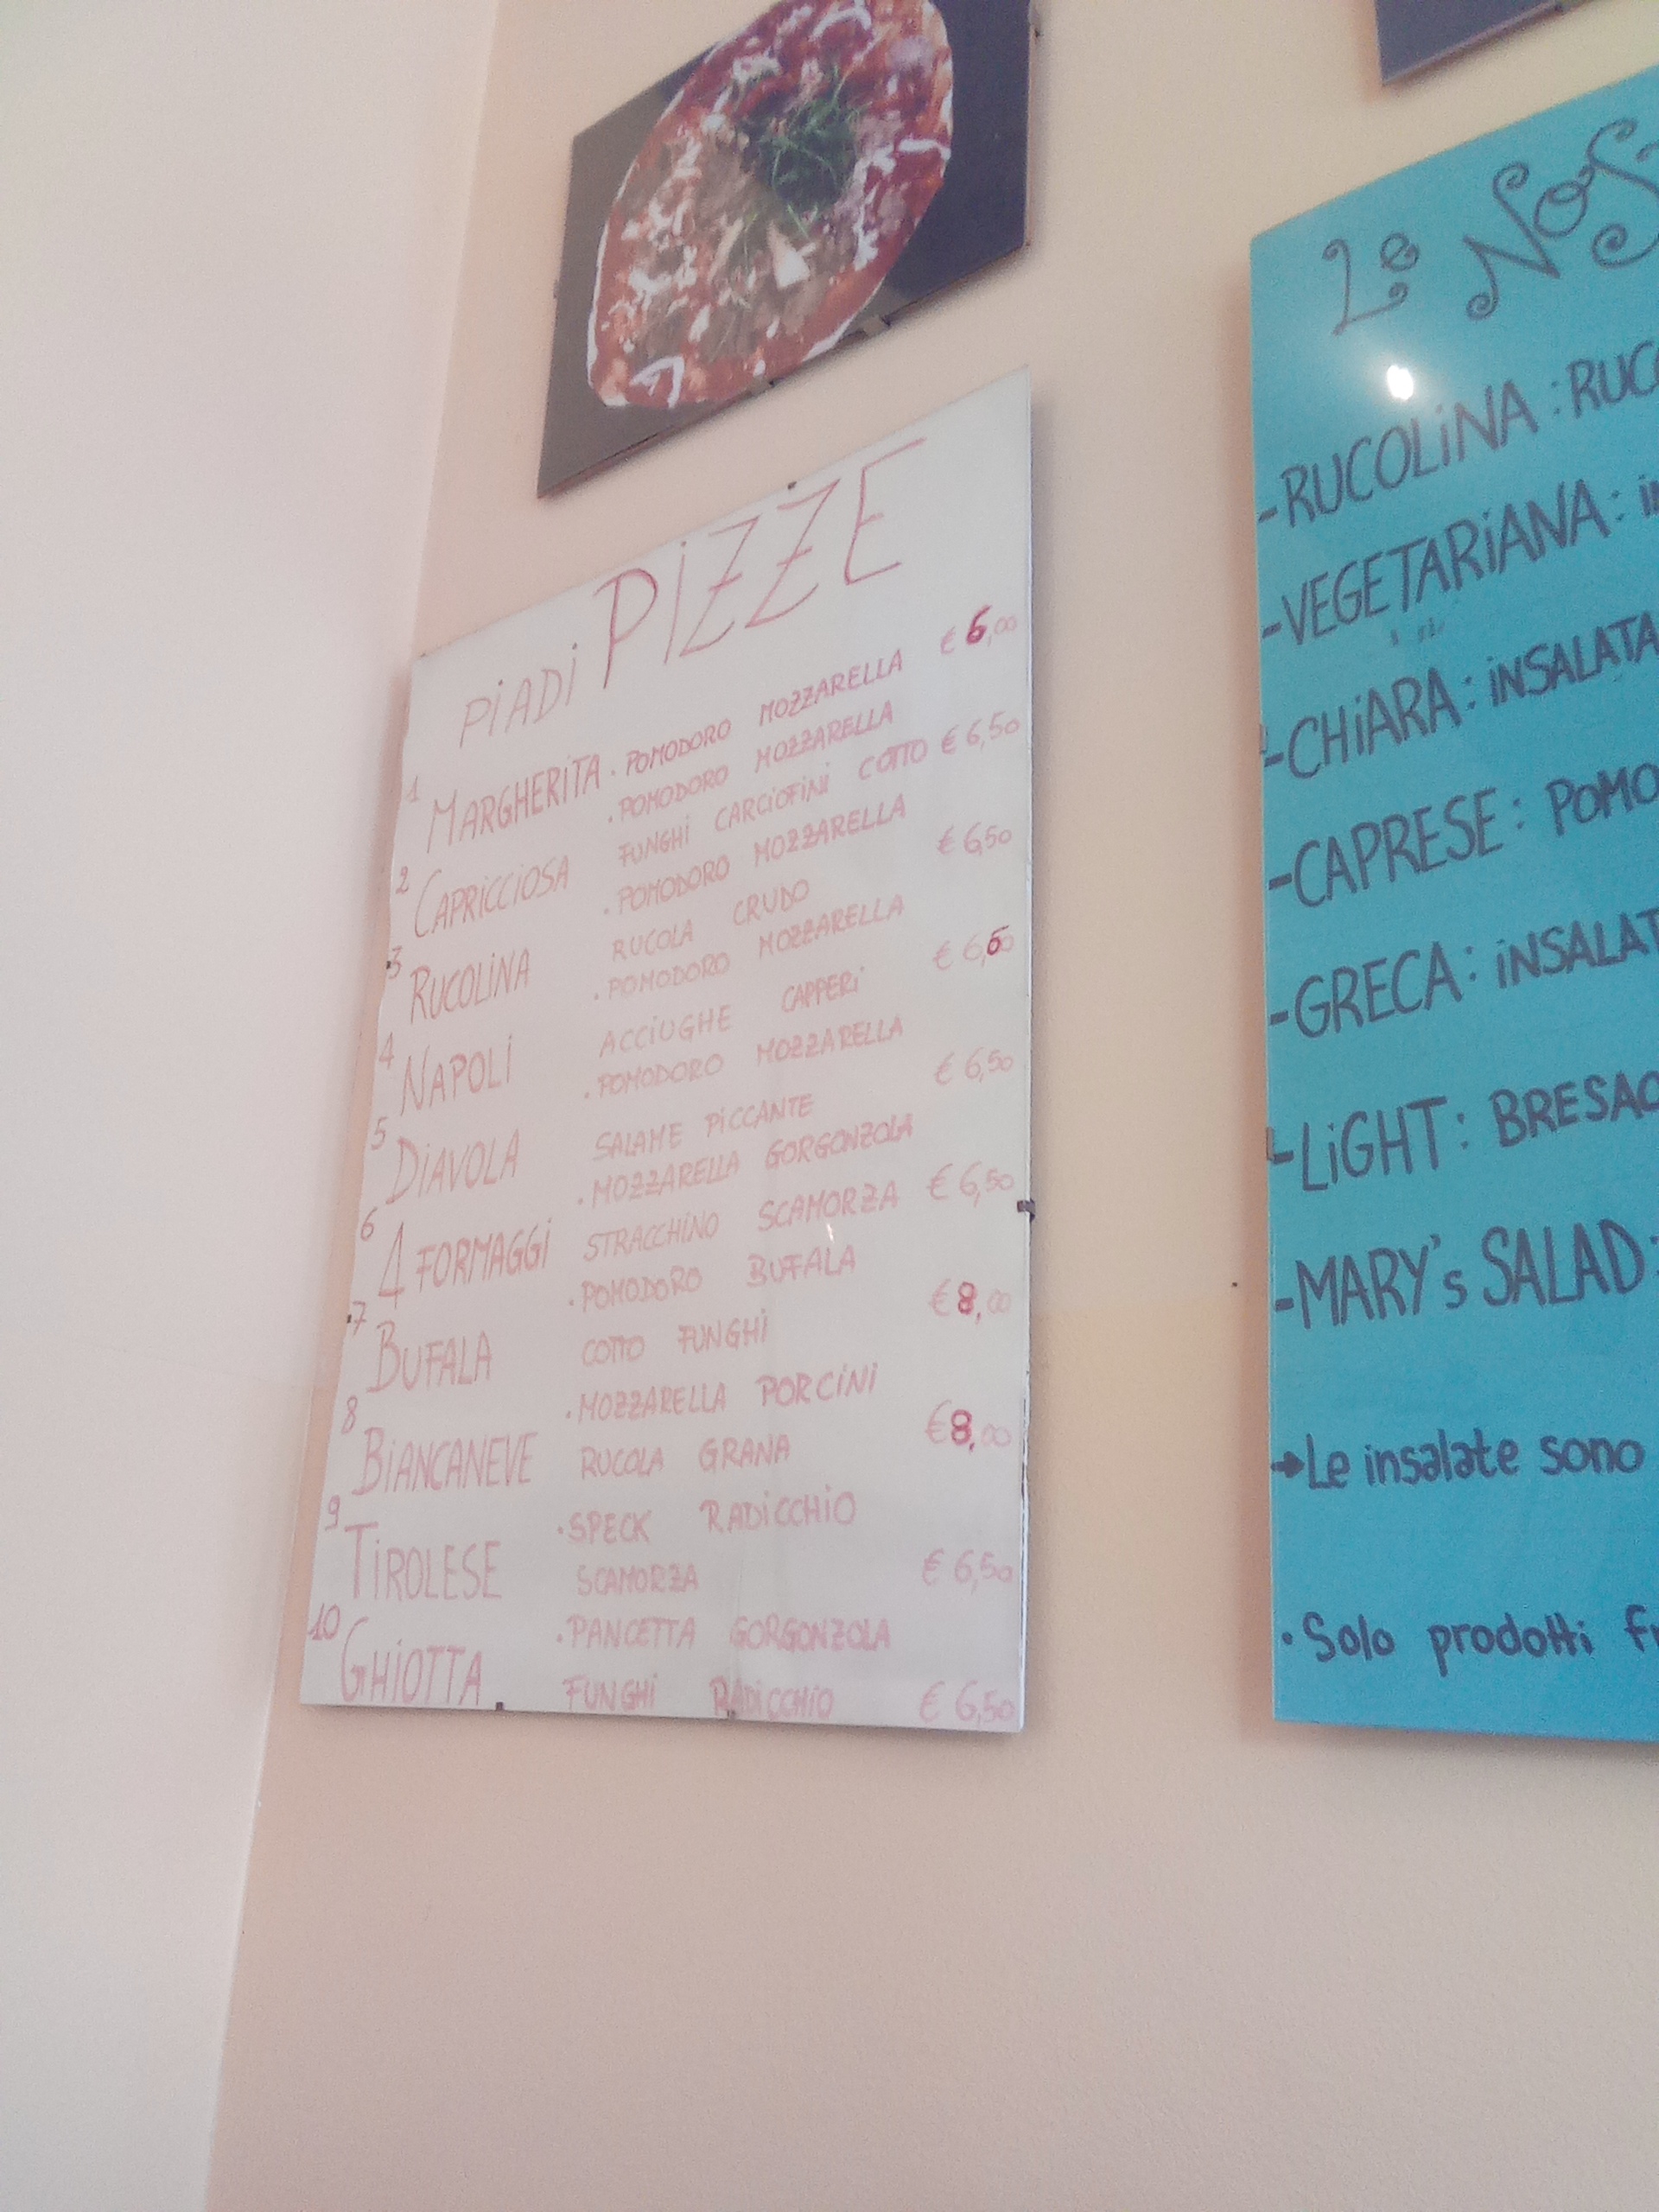 PiADi PiZZE
1 MARGHERiTA · POMODORO MOZZARELLA € 6,00
2 CAPRiCCiOSA · POMODORO MOZZARELLA
FUNGHi CARCiOFiNi COTTO € 6,50
3 RUCOLiNA · POMODORO MOZZARELLA
RUCOLA CRUDO € 6,50
4 NAPOLi · POMODORO MOZZARELLA
ACCiUGHE CAPPERi € 6,50
5 DiAVOLA · POMODORO MOZZARELLA
SALAME PiCCANTE € 6,50
6 4 FORMAGGi · MOZZARELLA GORGONZOLA
STRACCHiNO SCAMORZA € 6,50
7 BUFALA · POMODORO BUFALA
COTTO FUNGHi € 8,00
8 BiANCANEVE · MOZZARELLA PORCiNi
RUCOLA GRANA € 8,00
9 TiROLESE · SPECK RADiCCHiO
SCAMORZA € 6,50
10 GHiOTTA · PANCETTA GORGONZOLA
FUNGHi RADiCCHiO € 6,50
Le
- RUCOLiNA :
- VEGETARiANA :
- CHiARA : iNSALATA
- CAPRESE :
- GRECA :
- LiGHT :
- MARY's SALAD :
→ Le insalate sono
· Solo prodotti